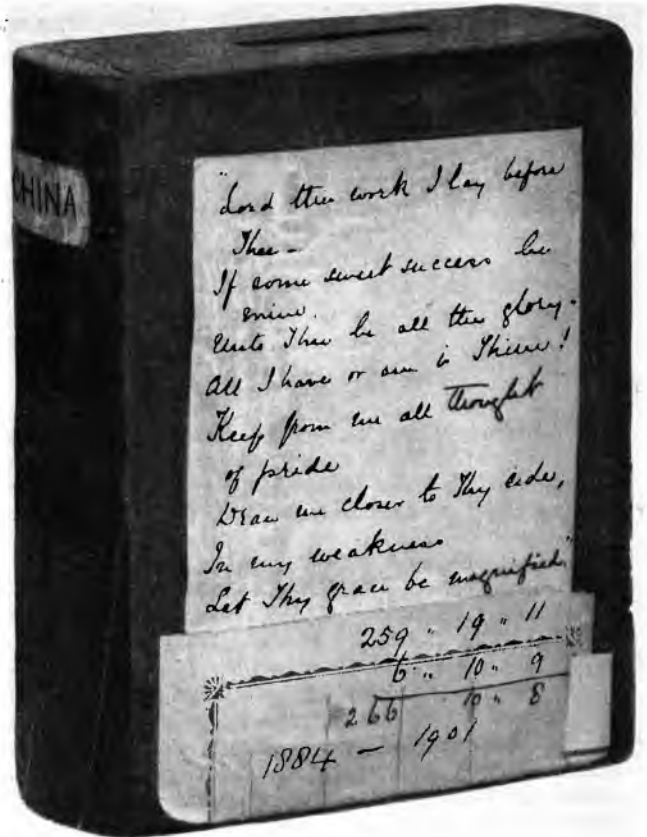 CHINA
"Lord the work I lay before
Thee –
If some sweet success be
mine.
Unto Thee be all the glory –
All I have or am is Thine!
Keep from me all thought
of pride
Draw me closer to Thy side,
In my weakness
Let Thy grace be magnified."
259 " 19 " 11
6 " 10 " 9
266 10 " 8
1884 – 1901